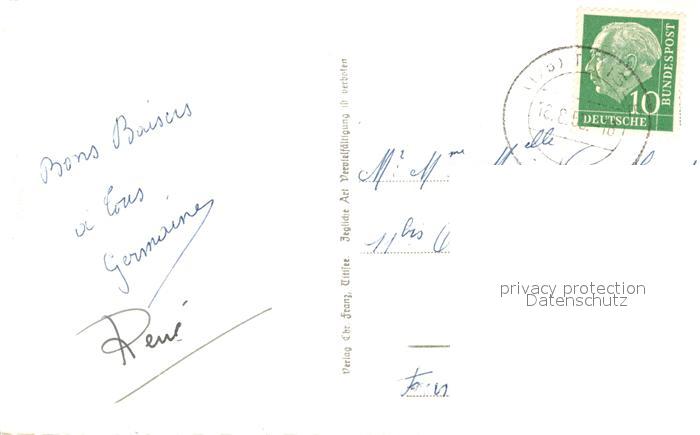 Bons Baisers
à tous
Germaine
René
Verlag Chr. Franz, Titisee. Jegliche Art Vervielfältigung ist verboten
10
BUNDESPOST
DEUTSCHE
Mr Mme Melle
11 bis
privacy protection
Datenschutz